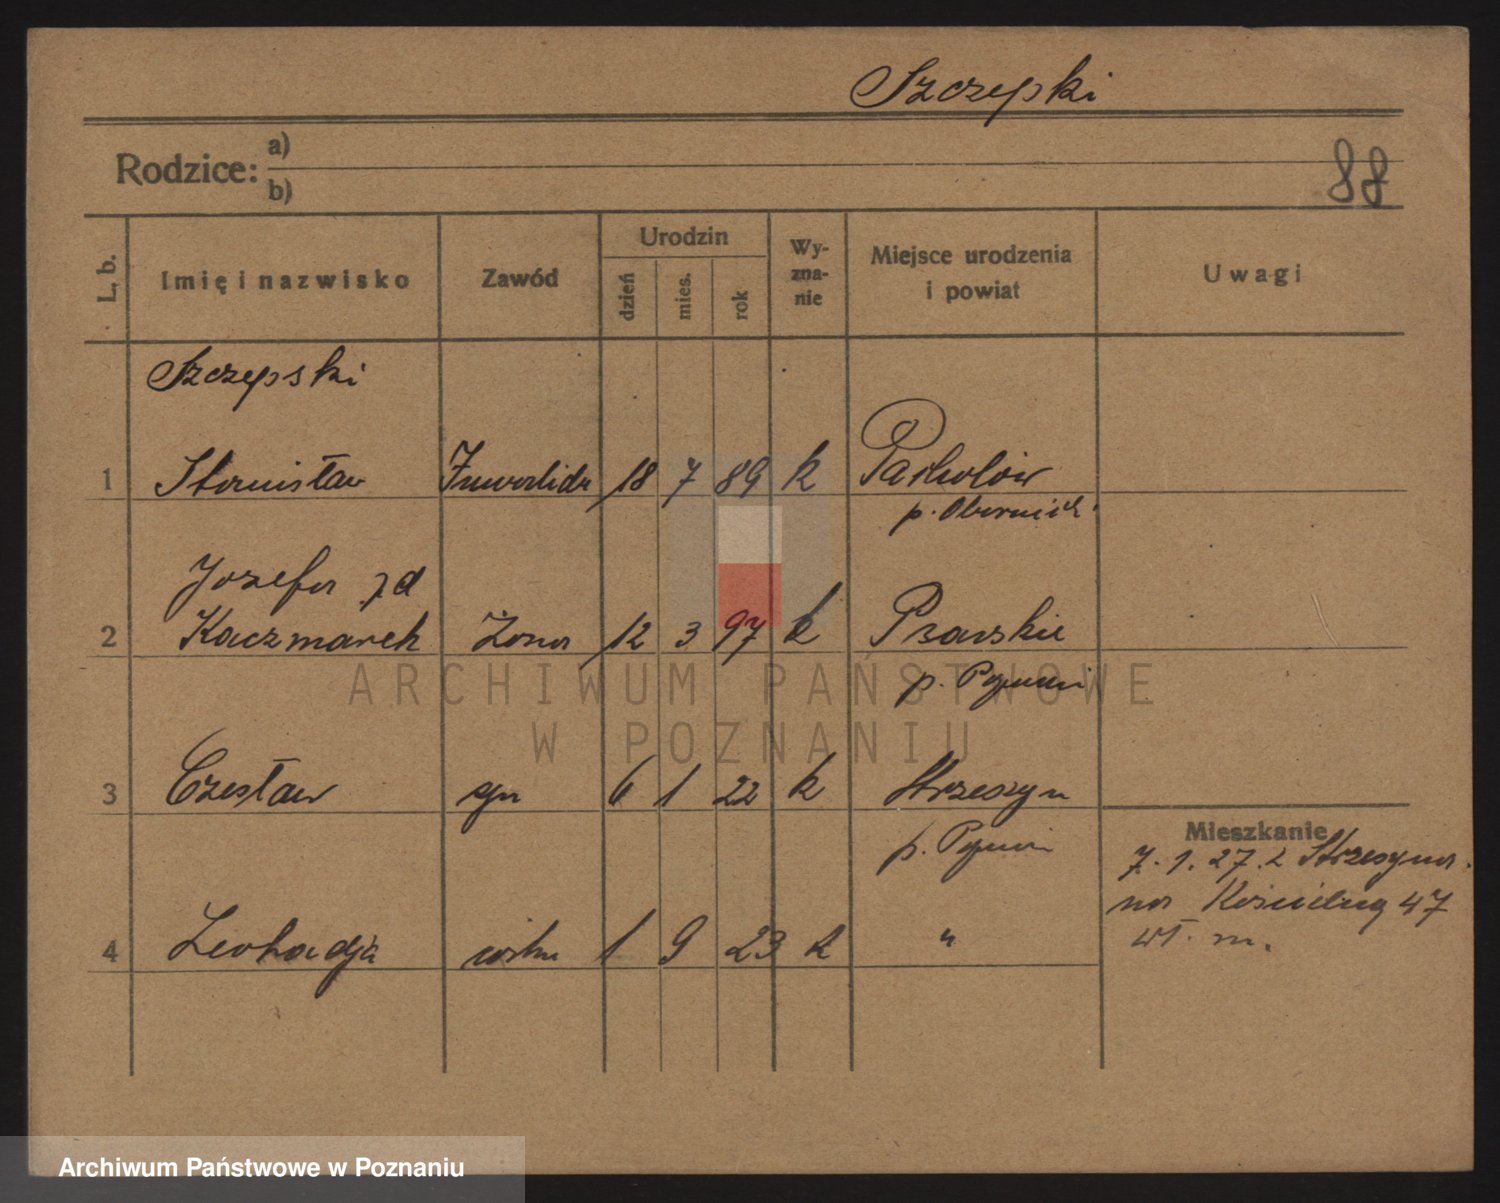 Szczepski
Rodzice: a)
b)
88
L. b.
Imię i nazwisko
Zawód
Urodzin
dzień
mies.
rok
Wy-
zna-
nie
Miejsce urodzenia
i powiat
Uwagi
Szczepski
1 Stanisław Inwalida 18 7 89 k
p. Obornik
Józefa z d
2 Kaczmarek Żona 12 3 97 k Psarskie
p.
3 Czesław syn 6 1 22 k Strzeszyn
p.
Mieszkanie
7.1.27. z Strzeszyna
na 47
4 Leokadja córka 1 9 23 k "
wł. m.
ARCHIWUM PAŃSTWOWE
W POZNANIU
Archiwum Państwowe w Poznaniu